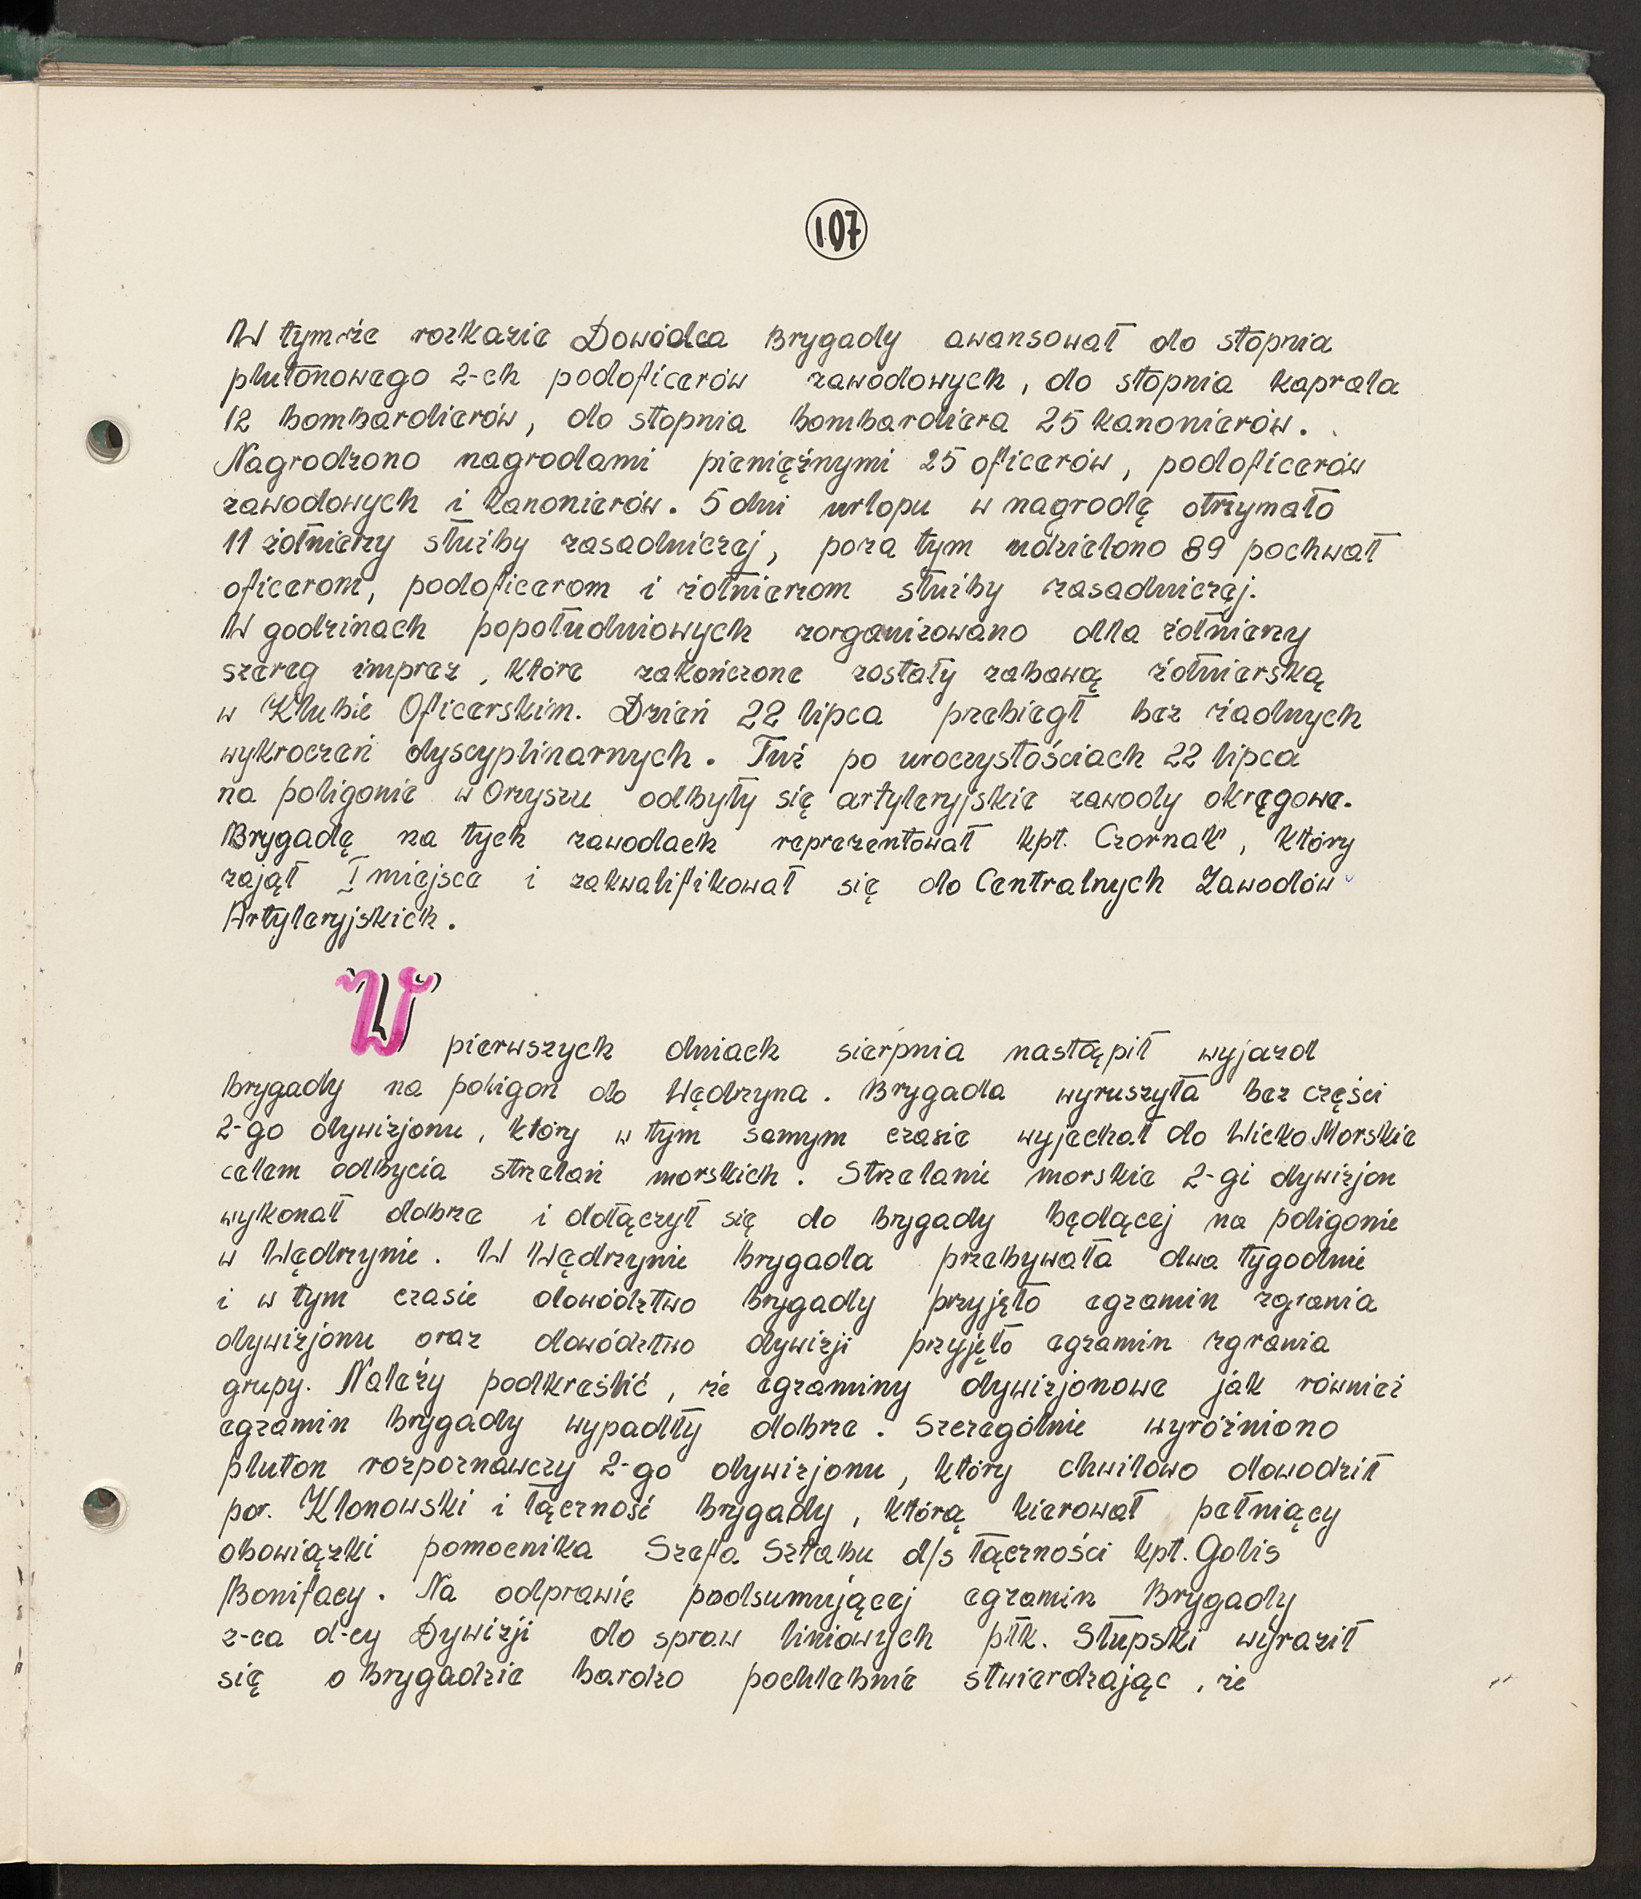 107
W tymże rozkazie Dowódca Brygady awansował do stopnia
plutonowego 2-ch podoficerów zawodowych, do stopnia kaprala
12 bombardierów, do stopnia bombardiera 25 kanonierów.
Nagrodzono nagrodami pieniężnymi 25 oficerów, podoficerów
zawodowych i kanonierów. 5 dni urlopu w nagrodę otrzymało
11 żołnierzy służby zasadniczej, poza tym udzielono 89 pochwał
oficerom, podoficerom i żołnierzom służby zasadniczej.
W godzinach popołudniowych zorganizowano dla żołnierzy
szereg imprez, które zakończone zostały zabawą żołnierską
w Klubie Oficerskim. Dzień 22 lipca przebiegł bez żadnych
wykroczeń dyscyplinarnych. Tuż po uroczystościach 22 lipca
na poligonie w Orzyszu odbyły się artyleryjskie zawody okręgowe.
Brygadę na tych zawodach reprezentował kpt. Czornak, który
zajął I miejsce i zakwalifikował się do Centralnych Zawodów
Artyleryjskich.
W pierwszych dniach sierpnia nastąpił wyjazd
brygady na poligon do Wędrzyna. Brygada wyruszyła bez części
2-go dywizjonu, który w tym samym czasie wyjechał do Wicko Morskie
celem odbycia strzelań morskich. Strzelanie morskie 2-gi dywizjon
wykonał dobrze i dołączył się do brygady będącej na poligonie
w Wędrzynie. W Wędrzynie brygada przebywała dwa tygodnie
i w tym czasie dowództwo brygady przyjęło egzamin zgrania
dywizjonu oraz dowództwo dywizji przyjęło egzamin zgrania
grupy. Należy podkreślić, że egzaminy dywizjonowe jak również
egzamin brygady wypadły dobrze. Szczególnie wyróżniono
pluton rozpoznawczy 2-go dywizjonu, który chwilowo dowodził
por. Klonowski i łączność brygady, którą kierował pełniący
obowiązki pomocnika Szefa Sztabu d/s łączności kpt. Golis
Bonifacy. Na odprawie podsumującej egzamin Brygady
z-ca d-cy Dywizji do spraw liniowych płk. Słupski wyraził
się o brygadzie bardzo pochlebnie stwierdzając, że